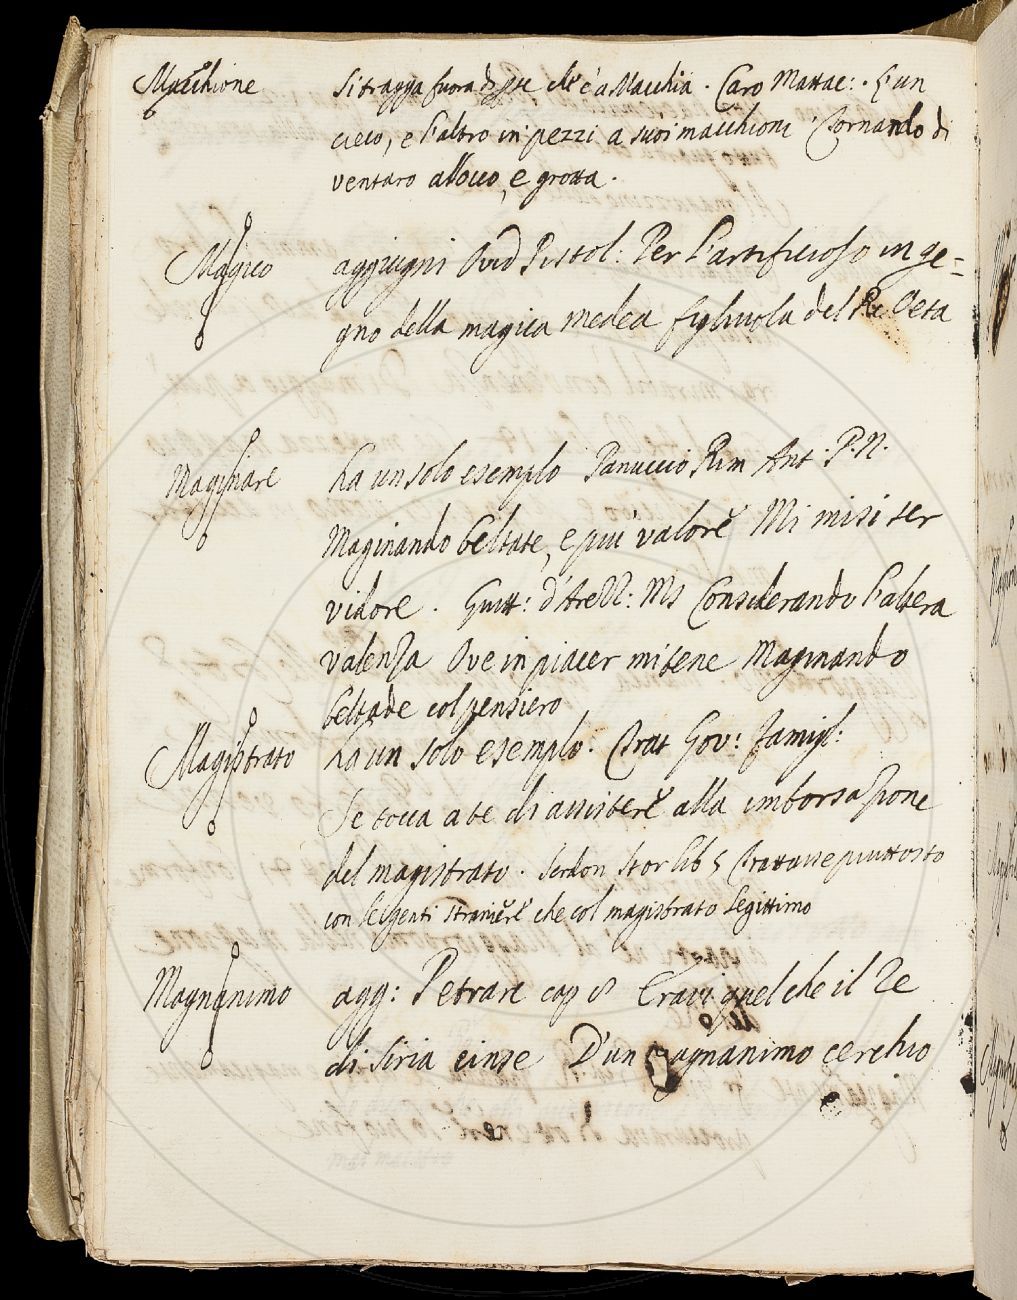 Macchione Si tragga fuora di che è a Macchia. Caro Mattac: . L'un
cieco, e l'altro in pezzi a suoi macchioni Tornando di
ventaro allocco, e grotta.
Magico aggiugni Ovid Pistol: Per l'artificioso inge=
gno della magica Medea figliuola del Re Oeta
Maginare ha un solo esempio Panuccio Rim Ant P. N.
Maginando beltate, e più valore Mi misi ser
vidore. Guitt: d'Arezz: Ms Considerando l'altera
valenza Ove in piacer mi tene Maginando
beltade col pensiero
Magistrato ha un solo esempio. Trat Gov: Famigl:
Se tocca a te di assistere alla imborsazione
del magistrato. Serdon Stor lib 5 Trattasse piuttosto
con le genti straniere che col magistrato legittimo
Magnanimo agg: Petrarc cap 8 Eravi quel che il Re
di Siria cinse D'un magnanimo cerchio